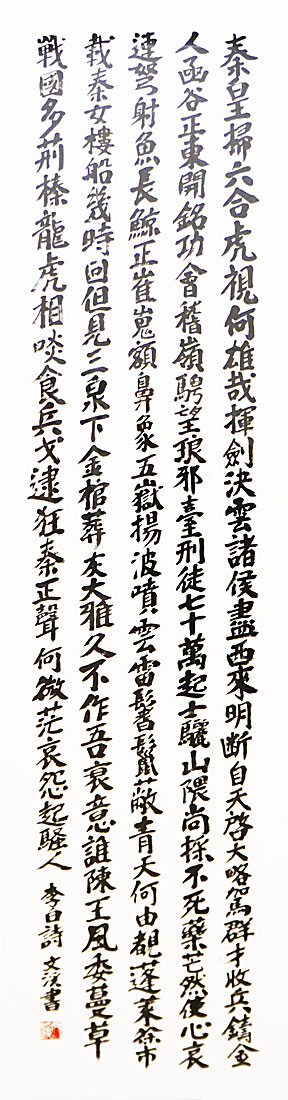 秦皇掃六合虎視何雄哉揮劍決雲諸侯盡西來明断自天啓大略駕群才收兵鑄金
人函谷正東開銘功會稽嶺騁望琅邪臺刑徒七十萬起土驪山隈尚採不死藥茫然使心哀
連弩射魚長鯨正崔嵬額鼻象五嶽揚波噴雲雷鬐鬣蔽青天何由覩蓬萊徐市
載秦女樓船幾時回但見三泉下金棺葬灰大雅久不作吾衰意誰陳王風委蔓草
戰國多荊榛龍虎相啖食兵戈逮狂秦正聲何微茫哀怨起騷人 李白詩 文 書